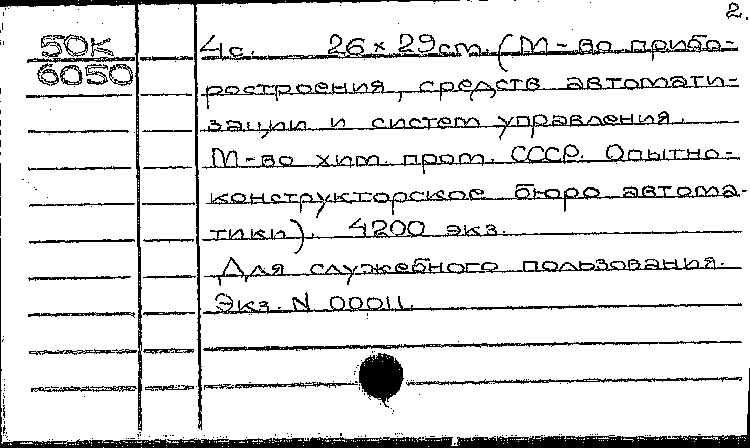 2.
50К
6050
4с. 26×29см. (М-во прибо-
ростроения, средств автомати-
зации и систем управления.
М-во хим. пром. СССР. Опытно-
конструкторское бюро автома-
тики). 4200 экз.
Для служебного пользования.
Экз. N 00011.